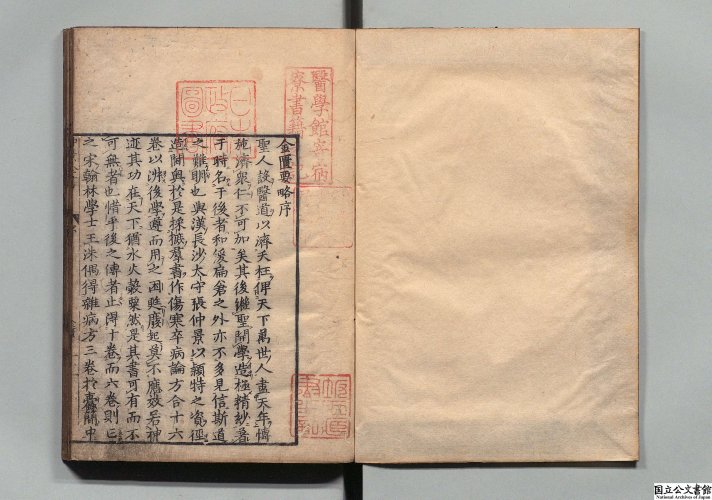 醫學館寄宿
寮書籍
日本
政府
圖書
金匱要略序
聖人設醫道以濟夭枉俾天下萬世人盡天年博
施濟衆仁不可加矣其後繼聖開學造極精妙著
于時名于後者和緩扁倉之外亦不多見信斯道
之難明也與漢長沙太守張仲景以穎特之資徑
造閫奧於是採摭羣書作傷寒卒病論方合十六
卷以淑後學遵而用之困甦廢起莫不應效若神
迹其功在天下猶水火穀粟然是其書可有而不
可無者也惜乎後之傳者止得十卷而六卷則亡
之宋翰林學士王洙偶得雜病方三卷於蠹簡中
国立公文書館
National Archives of Japan